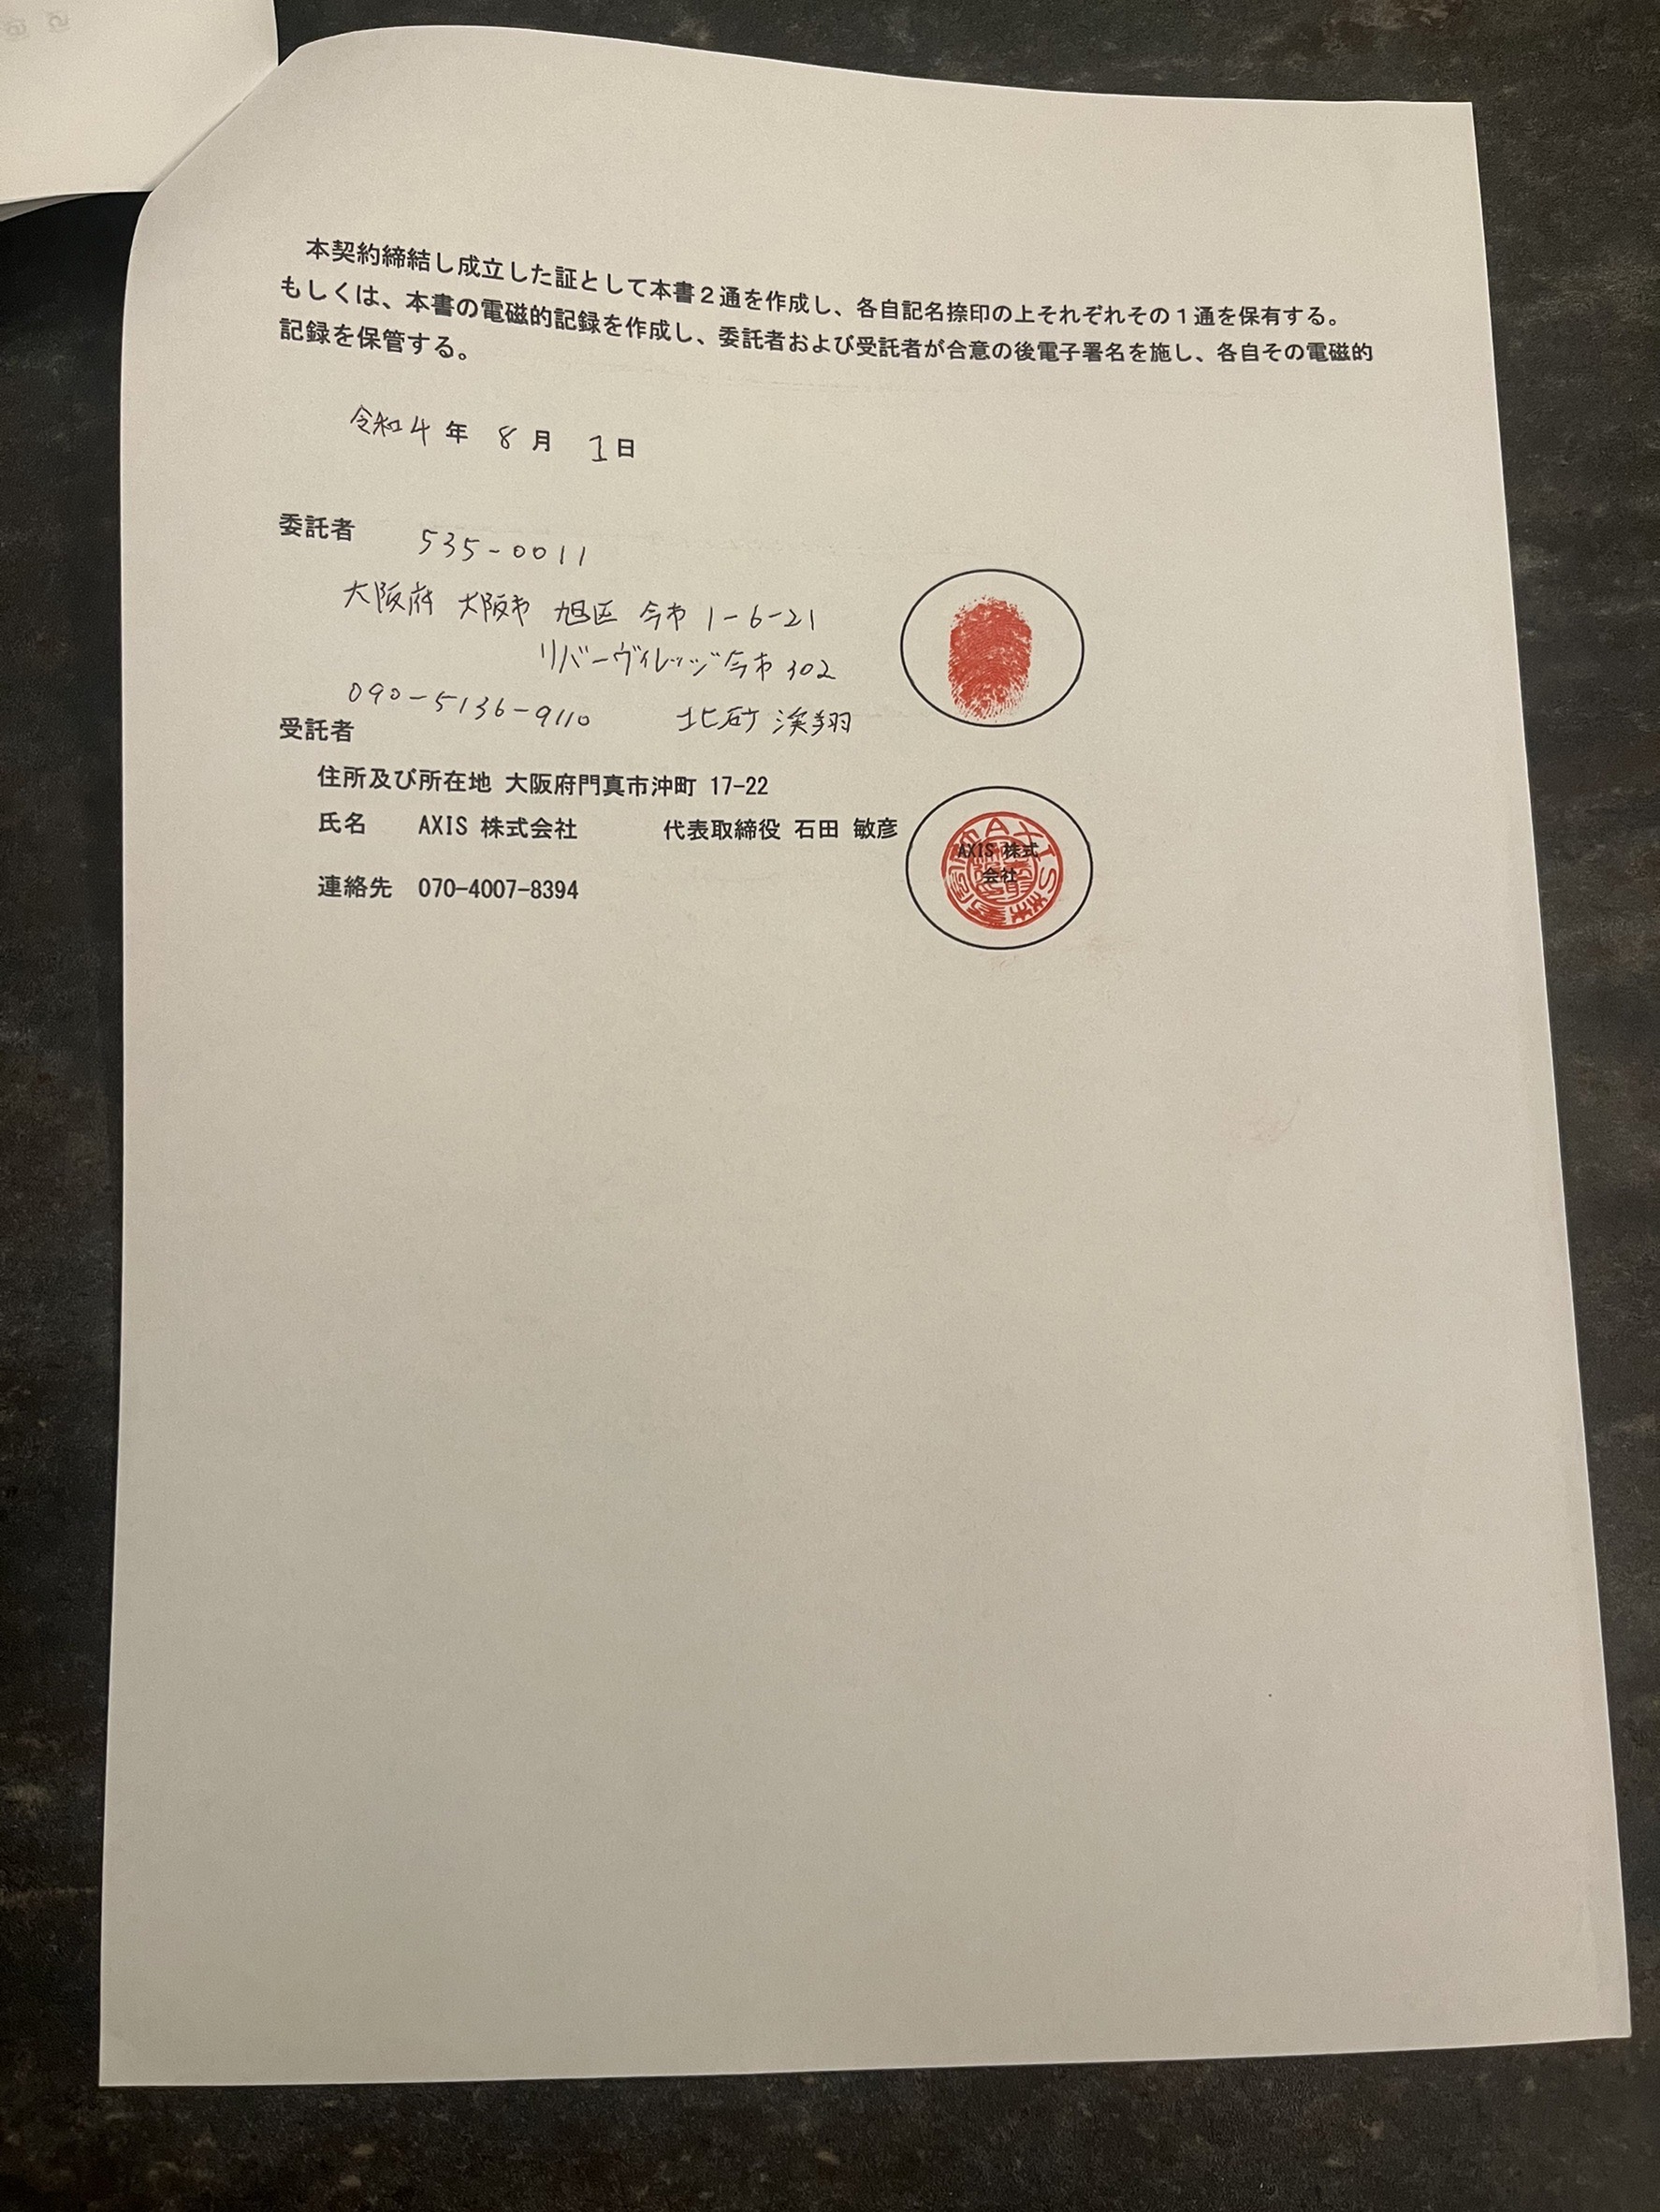 本契約締結し成立した証として本書２通を作成し、各自記名捺印の上それぞれその１通を保有する。
もしくは、本書の電磁的記録を作成し、委託者および受託者が合意の後電子署名を施し、各自その電磁的
記録を保管する。
令和4年 8月 1日
委託者 535-0011
大阪府 大阪市 旭区 今市 1-6-21
リバーヴィレッジ今市 302
090-5136-9110 北砂 渓翔
受託者
住所及び所在地 大阪府門真市沖町 17-22
氏名 AXIS 株式会社 代表取締役 石田 敏彦
AXIS 株式
会社
連絡先 070-4007-8394